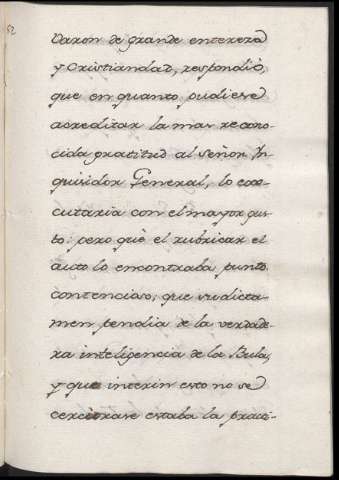 52
Varon de grande entereza
y Cristiandad, respondiò,
que en quanto pudiese
acreditar la mas recono-
cida gratitud al Señor In-
quisidor General, lo exe-
cutaria con el mayor gus-
to: pero què el rubricar el
auto lo encontraba punto
contencioso, que su dicta-
men pendia de la verdade-
ra inteligencia de la Bula,
y que interin esto no se
cerciorase estaba la practi-